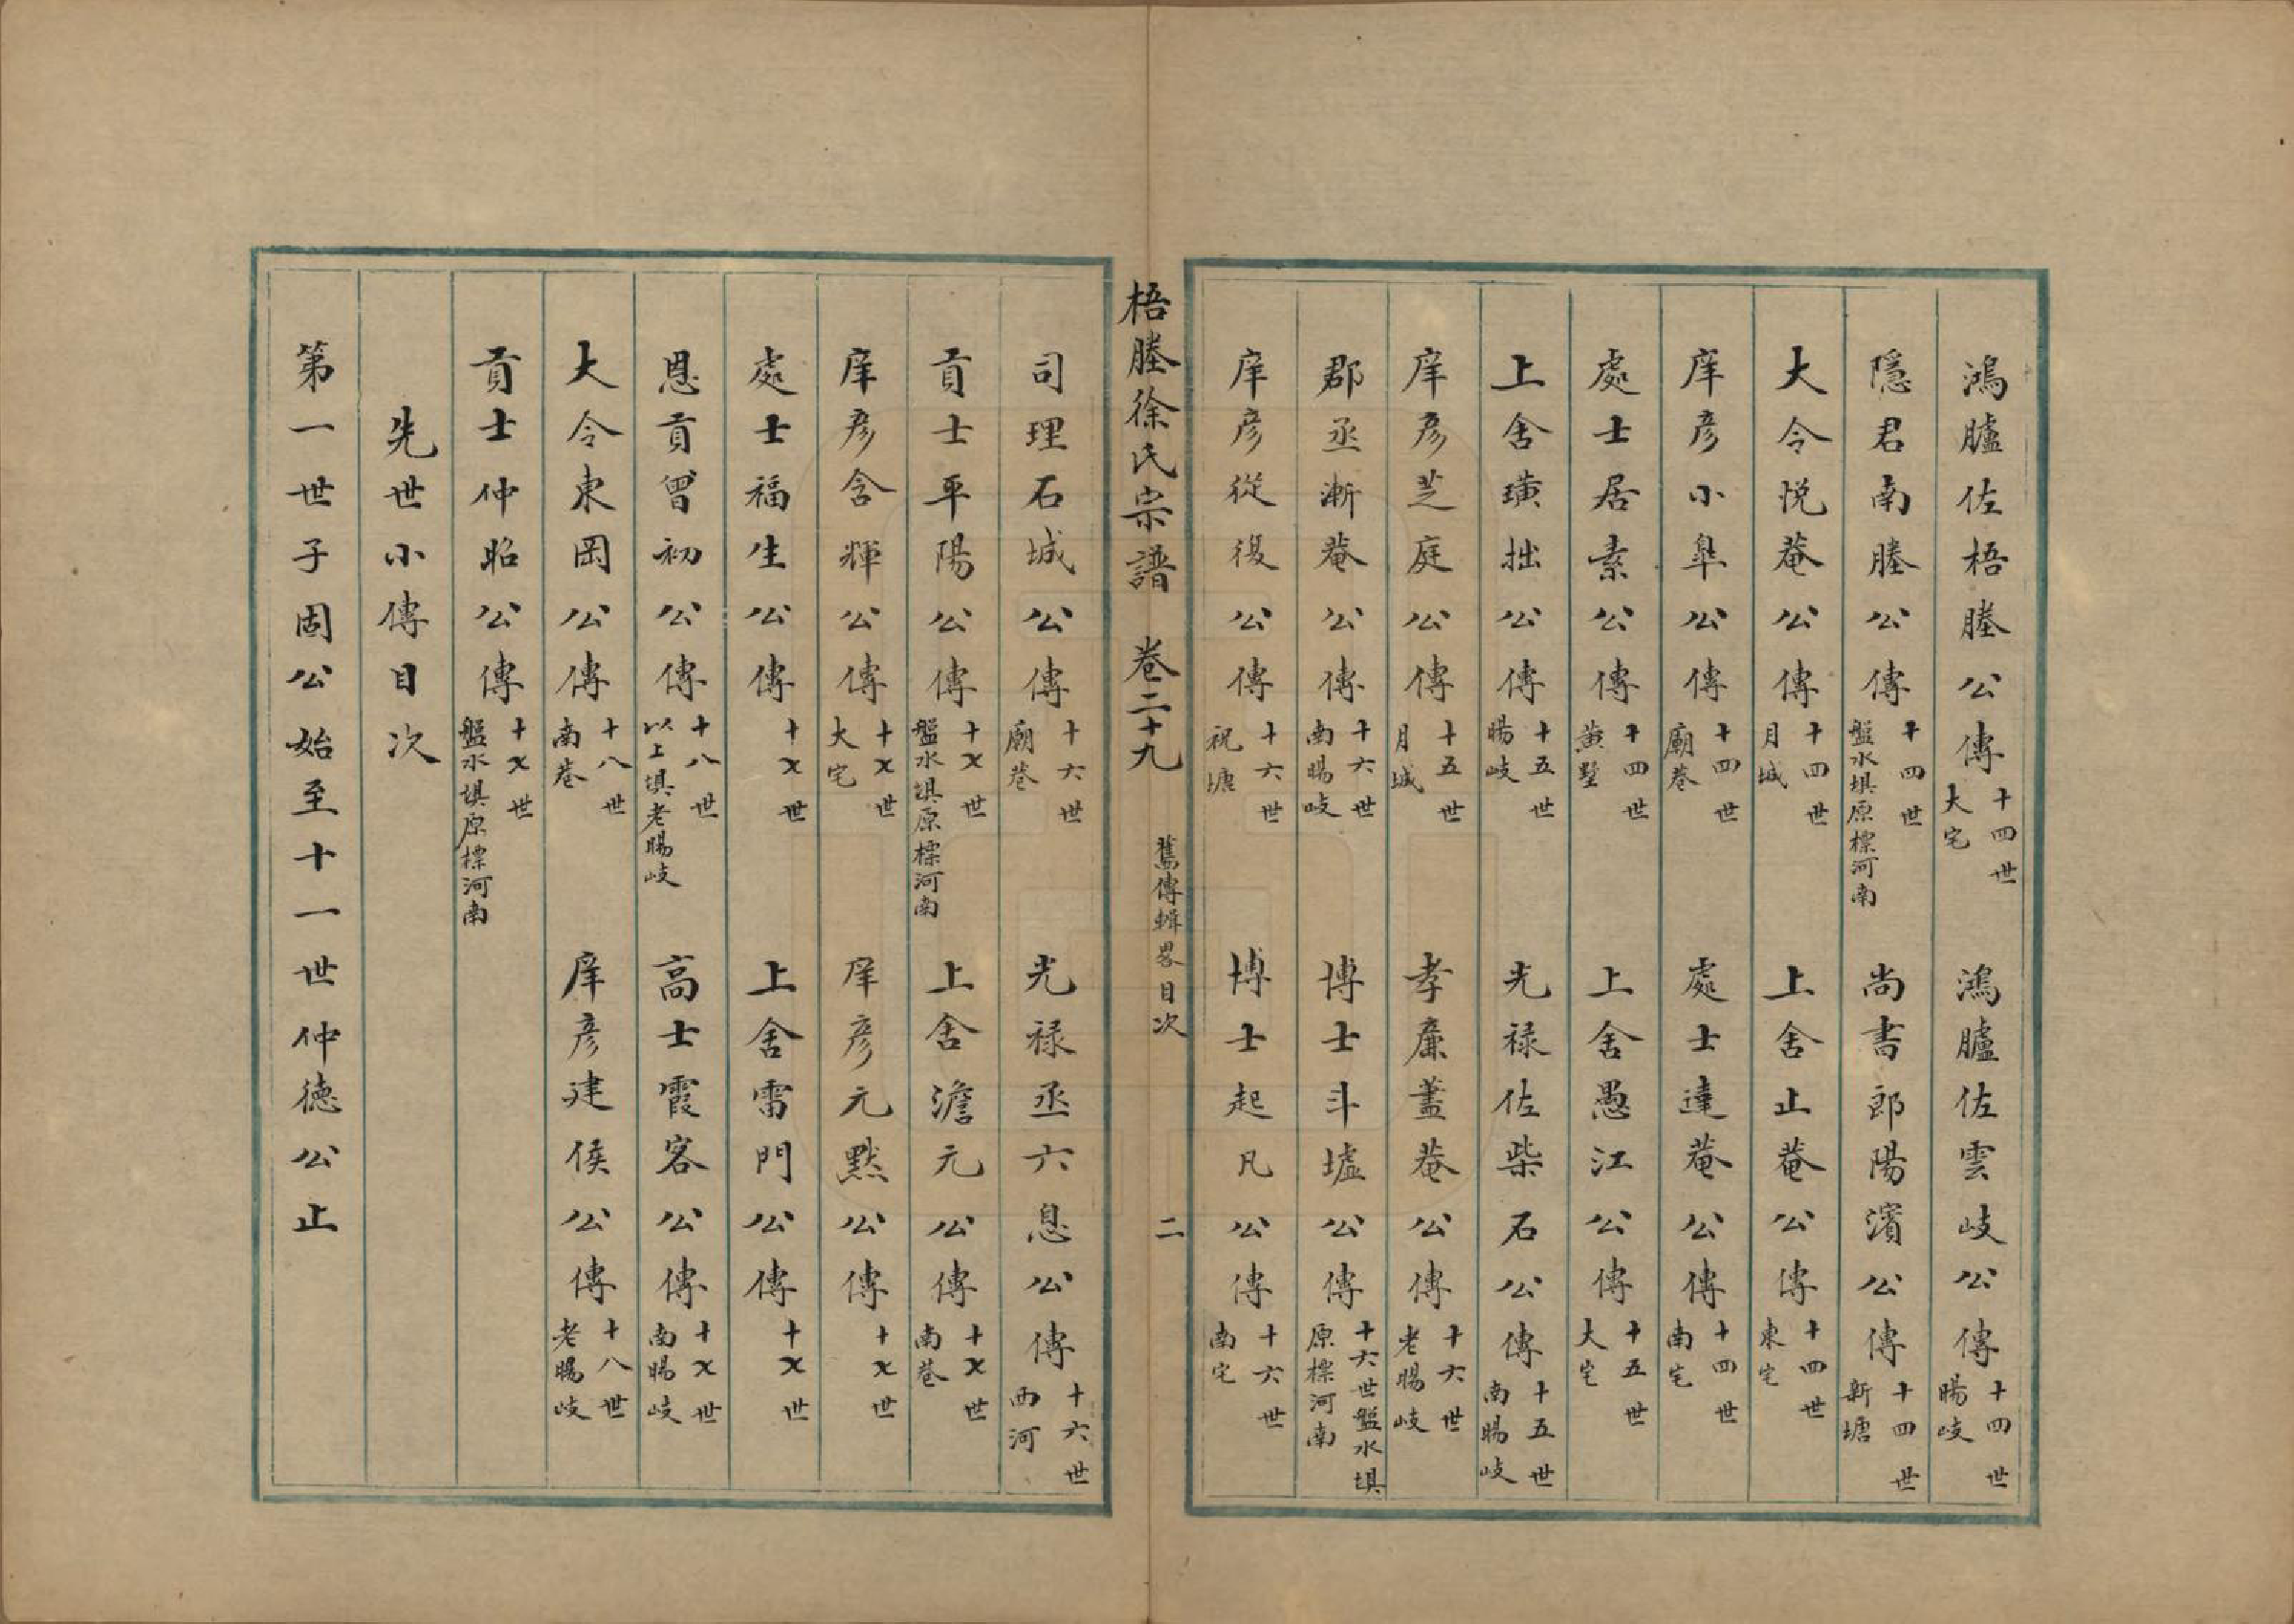 鴻臚佐梧塍公傳 十四世 大宅 鴻臚佐雲岐公傳 十四世 暘岐
隱君南塍公傳 十四世 盤水塤原標河南 尚書郎陽濱公傳 十四世 新塘
大令悅菴公傳 十四世 月城 上舍止菴公傳 十四世 東宅
庠彥小臯公傳 十四世 廟巷 處士達菴公傳 十四世 南宅
處士居素公傳 十四世 黃墅 上舍愚江公傳 十五世 大宅
上舍璜拙公傳 十五世 暘岐 光祿佐柴石公傳 十五世 南暘岐
庠彥芝庭公傳 十五世 月城 孝廉藎菴公傳 十六世 老暘岐
郡丞漸菴公傳 十六世 南暘岐 博士斗墟公傳 十六世盤水塤 原標河南
庠彥從復公傳 十六世 祝塘 博士起凡公傳 十六世 南宅
梧塍徐氏宗譜 卷二十九 舊傳輯畧目次 二
司理石城公傳 十六世 廟巷 光祿丞六息公傳 十六世 西河
貢士平陽公傳 十七世 盤水塤原標河南 上舍澹元公傳 十七世 南巷
庠彥含輝公傳 十七世 大宅 庠彥元默公傳 十七世
處士福生公傳 十七世 上舍雷門公傳 十七世
恩貢曾初公傳 十八世 以上塤老暘岐 高士霞客公傳 十七世 南暘岐
大令東岡公傳 十八世 南巷 庠彥建侯公傳 十八世 老暘岐
貢士仲昭公傳 十七世 盤水塤原標河南
先世小傳目次
第一世子固公始至十一世仲德公止